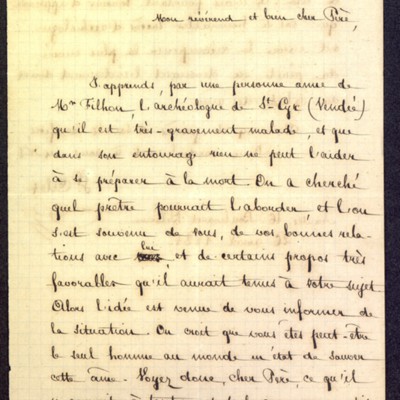 Mon révérend et bien cher Père,
J'apprends, par une personne amie de
Mr Filhon, l'archéologue de St Cyr (Vendée)
qu'il est très-gravement malade, et que
dans son entourage rien ne peut l'aider
à se préparer à la mort. On a cherché
quel prêtre pourrait l'aborder, et l'on
s'est souvenu de vous, de vos bonnes rela-
tions avec lui, et de certains propos très
favorables qu'il aurait tenus à votre sujet
Alors l'idée est venue de vous informer de
la situation. On croit que vous êtes peut-être
le seul homme au monde en état de sauver
cette âme. Voyez donc, cher Père, ce qu'il